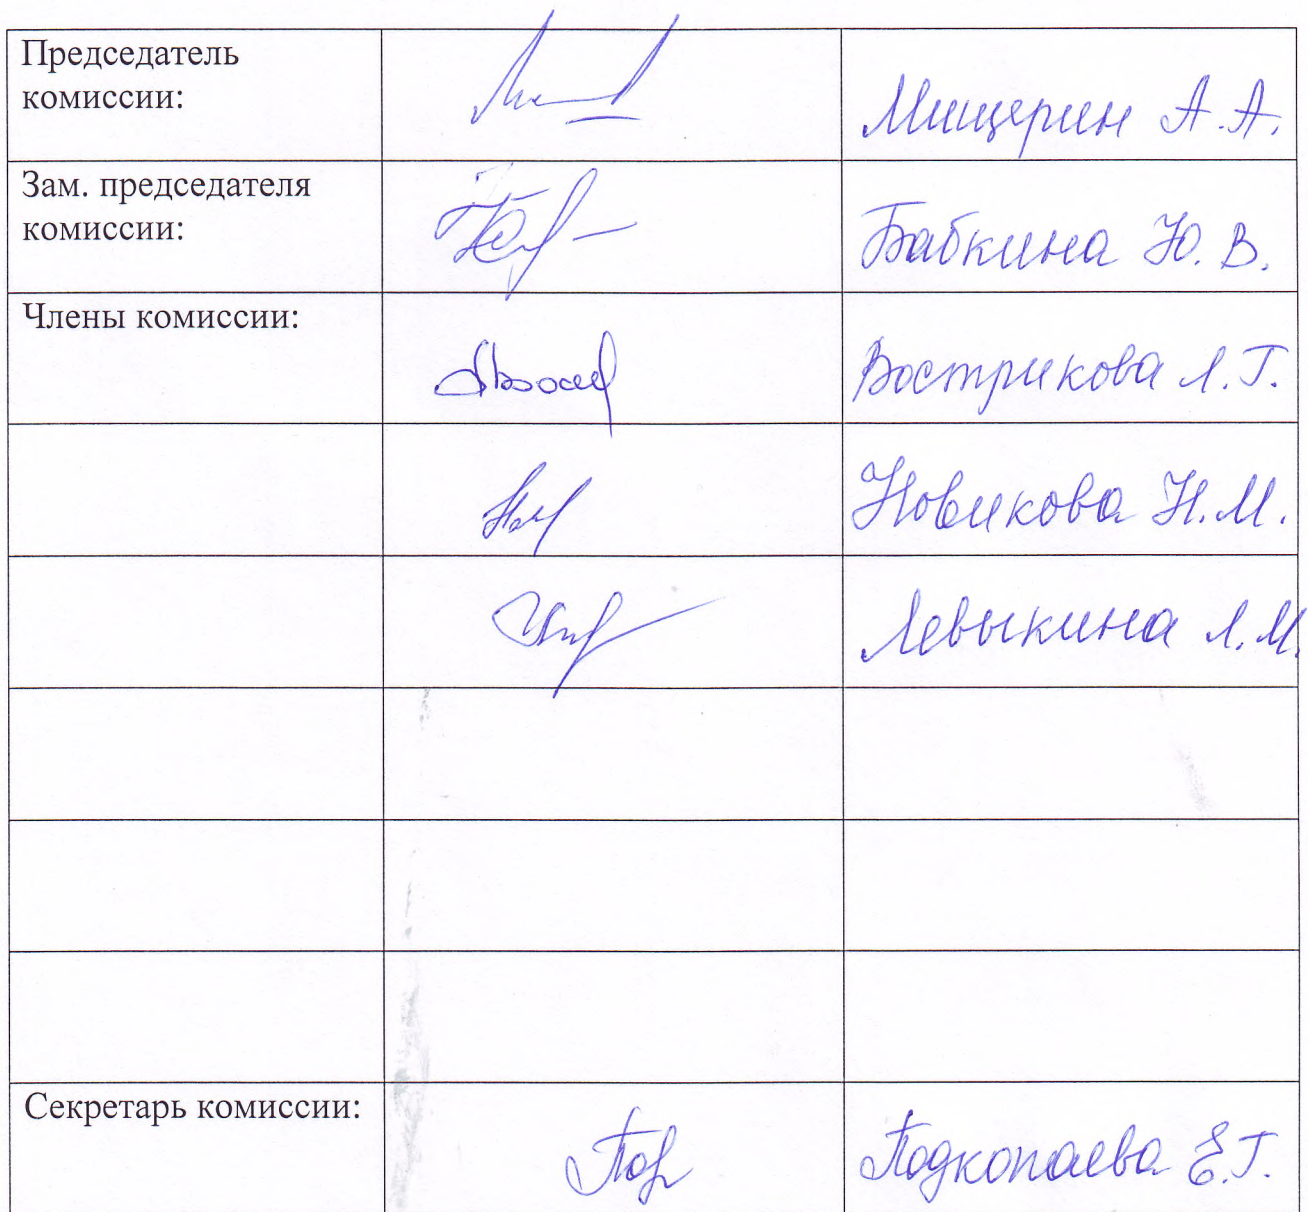 Председатель
комиссии:
Мищерин А.А.
Зам. председателя
комиссии:
Бабкина Ю.В.
Члены комиссии:
Вострикова Л.Г.
Новикова Н.М.
Левыкина Л.М.
Секретарь комиссии:
Подкопаева Е.Г.